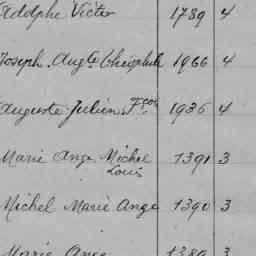 Adolphe Victor 1789 4
Joseph Augte Théophile 1966 4
Auguste Julien Fçois 1936 4
Marie Ange Michel 1391 3
Louis
Michel Marie Ange 1390 3
Marie Ange 1389 3